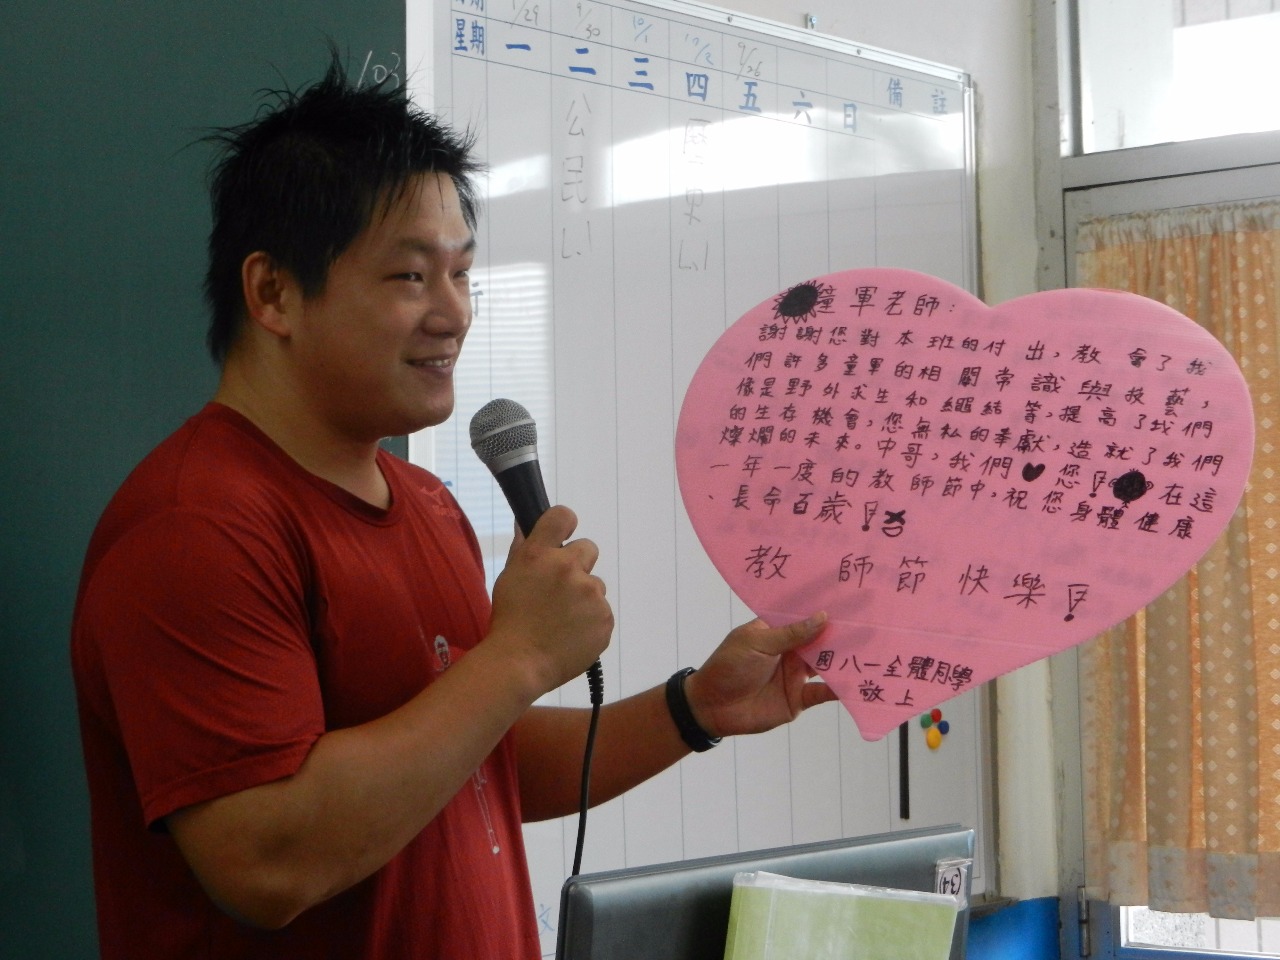 103
星期 一 二 三 四 五 六 日 備註
1/29 9/30 10/1 10/2 9/26
公民
歷
童軍老師:
謝謝您對本班的付出,教會了我
們許多童軍的相關常識與技藝,
像是野外求生和繩結等,提高了我們
的生存機會,您無私的奉獻,造就了我們
燦爛的未來。中哥,我們♥您! 在這
一年一度的教師節中,祝您身體健康
、長命百歲!
教師節快樂!
國八一全體同學
敬上
(34)